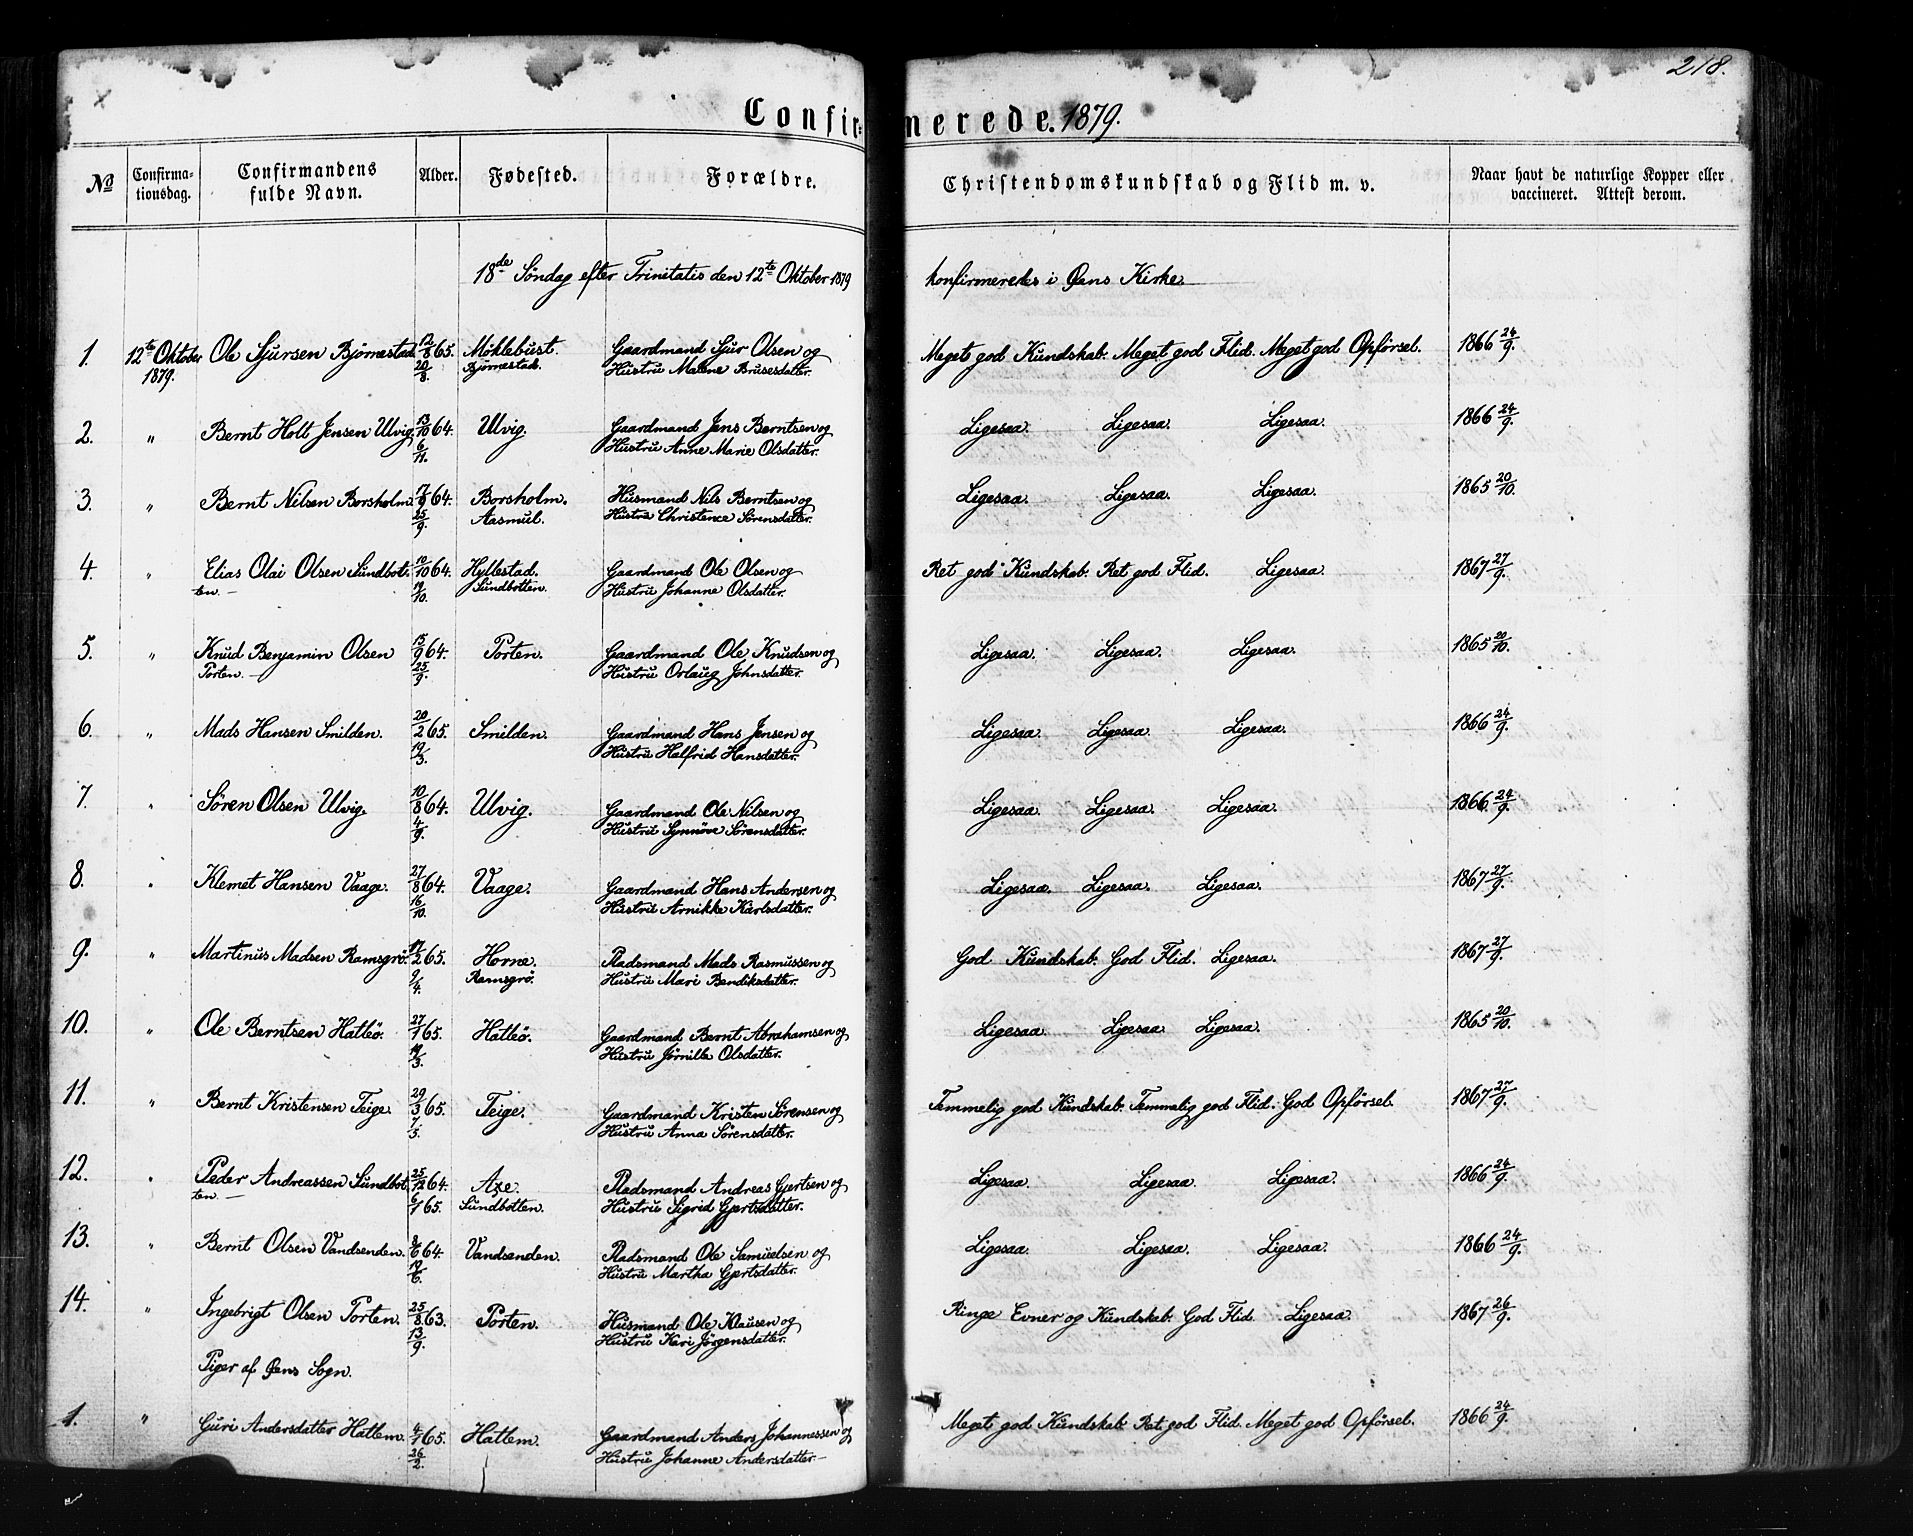 218.
Confirmerede. 1879.
№ Confirmationsdag. Confirmandens fulde Navn. Alder. Fødested. Forældre. Christendomskundskab og Flid m. v. Naar havt de naturlige Kopper eller vaccineret. Attest derom.
18de Søndag efter Trinitatis den 12te Oktober 1879 konfirmeredes i Øens Kirke.
1. 12te Oktober Ole Sjursen Bjørnestad 12/8 65. Møklebust. Gaardmand Sjur Olsen og Meget god Kundskab. Meget god Flid. Meget god Opførsel. 1866 24/9.
1879. 20/8. Bjørnestad. Hustru Malene Brusesdatter.
2. " Bernt Holt Jensen Ulvig 13/10 64. Ulvig. Gaardmand Jens Berntsen og Ligesaa. Ligesaa. Ligesaa. 1866 24/9.
6/11. Hustru Anne Marie Olsdatter.
3. " Bernt Nilsen Borsholm. 7/9 64. Borsholm. Husmand Nils Berntsen og Ligesaa. Ligesaa. Ligesaa. 1865 20/10.
25/9. Aasmul. Hustru Christence Sørensdatter.
4. " Elias Olai Olsen Sundbot- 10/10 64. Hyllestad. Gaardmand Ole Olsen og Ret god Kundskab. Ret god Flid. Ligesaa. 1867 27/9.
ten. 19/10. Sundbotten. Hustru Johanne Olsdatter.
5. " Knud Benjamin Olsen 15/9 64. Porten. Gaardmand Ole Knudsen og Ligesaa. Ligesaa. Ligesaa. 1865 20/10.
Porten. 25/9. Hustru Orlaug Johnsdatter.
6. " Mads Hansen Smilden. 20/2 65. Smilden. Gaardmand Hans Jensen og Ligesaa. Ligesaa. Ligesaa. 1866 24/9.
19/3. Hustru Halfrid Hansdatter.
7. " Søren Olsen Ulvig. 10/8 64. Ulvig. Gaardmand Ole Nilsen og Ligesaa. Ligesaa. Ligesaa. 1866 24/9.
4/9. Hustru Synnøve Sørensdatter.
8. " Klemet Hansen Vaage. 27/8 64. Vaage. Gaardmand Hans Andersen og Ligesaa. Ligesaa. Ligesaa. 1867 27/9.
16/10. Hustru Arnikke Karlsdatter.
9. " Martinus Madsen Ramsgrø. 17/2 65. Horne. Pladsmand Mads Rasmussen og God Kundskab. God Flid. Ligesaa. 1867 27/9.
9/4. Ramsgrø. Hustru Mari Bendiksdatter.
10. " Ole Berntsen Hatleø. 27/1 65. Hatleø. Gaardmand Bernt Abrahamsen og Ligesaa. Ligesaa. Ligesaa. 1865 20/10.
19/3. Hustru Jørnille Olsdatter.
11. " Bernt Kristensen Teige. 29/3 65. Teige. Gaardmand Kristen Sørensen og Temmelig god Kundskab. Temmelig god Flid. God Opførsel. 1867 27/9.
7/5. Hustru Anna Sørensdatter.
12. " Peder Andreassen Sundbot- 25/12 64. Axe. Pladsmand Andreas Gjertsen og Ligesaa. Ligesaa. Ligesaa. 1866 24/9.
ten. 6/1 65. Sundbotten. Hustru Sigrid Gjertsdatter.
13. " Bernt Olsen Vandsenden. 8/6 64. Vandsenden. Pladsmand Ole Samuelsen og Ligesaa. Ligesaa. Ligesaa. 1866 24/9.
19/6. Hustru Martha Gjertsdatter.
14. " Ingebrigt Olsen Porten. 25/8 63. Porten. Husmand Ole Klausen og Ringe Evner og Kundskab. God Flid. Ligesaa. 1867 26/9.
13/9. Hustru Kari Jørgensdatter.
Piger af Øens Sogn.
1. " Guri Andersdatter Hatlem. 4/1 65. Hatlem. Gaardmand Anders Johannessen og Meget god Kundskab. Ret god Flid. Meget god Opførsel. 1866 24/9.
26/2. Hustru Johanne Andersdatter.